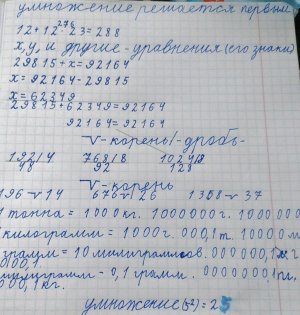 умножение решается первым
276
12+12·23=288
x, y, и другие-уравнения(его знаки)
29815+x=92164
x=92164-29815
x=62349
29815+62349=92164
92164=92164
√-корень/-дробь-
192/4 768/8
48 92 128
√-корень
196 √ 14 676 √ 26 1368 √ 37
1 тонна = 1000 кг. 1000000 г.
килограмм = 1000 г. 000,1 т.
грамм = 10 миллиграммов.
миллиграмм - 0,1 грамм.
000,1 кг.
умножение(5²)=25